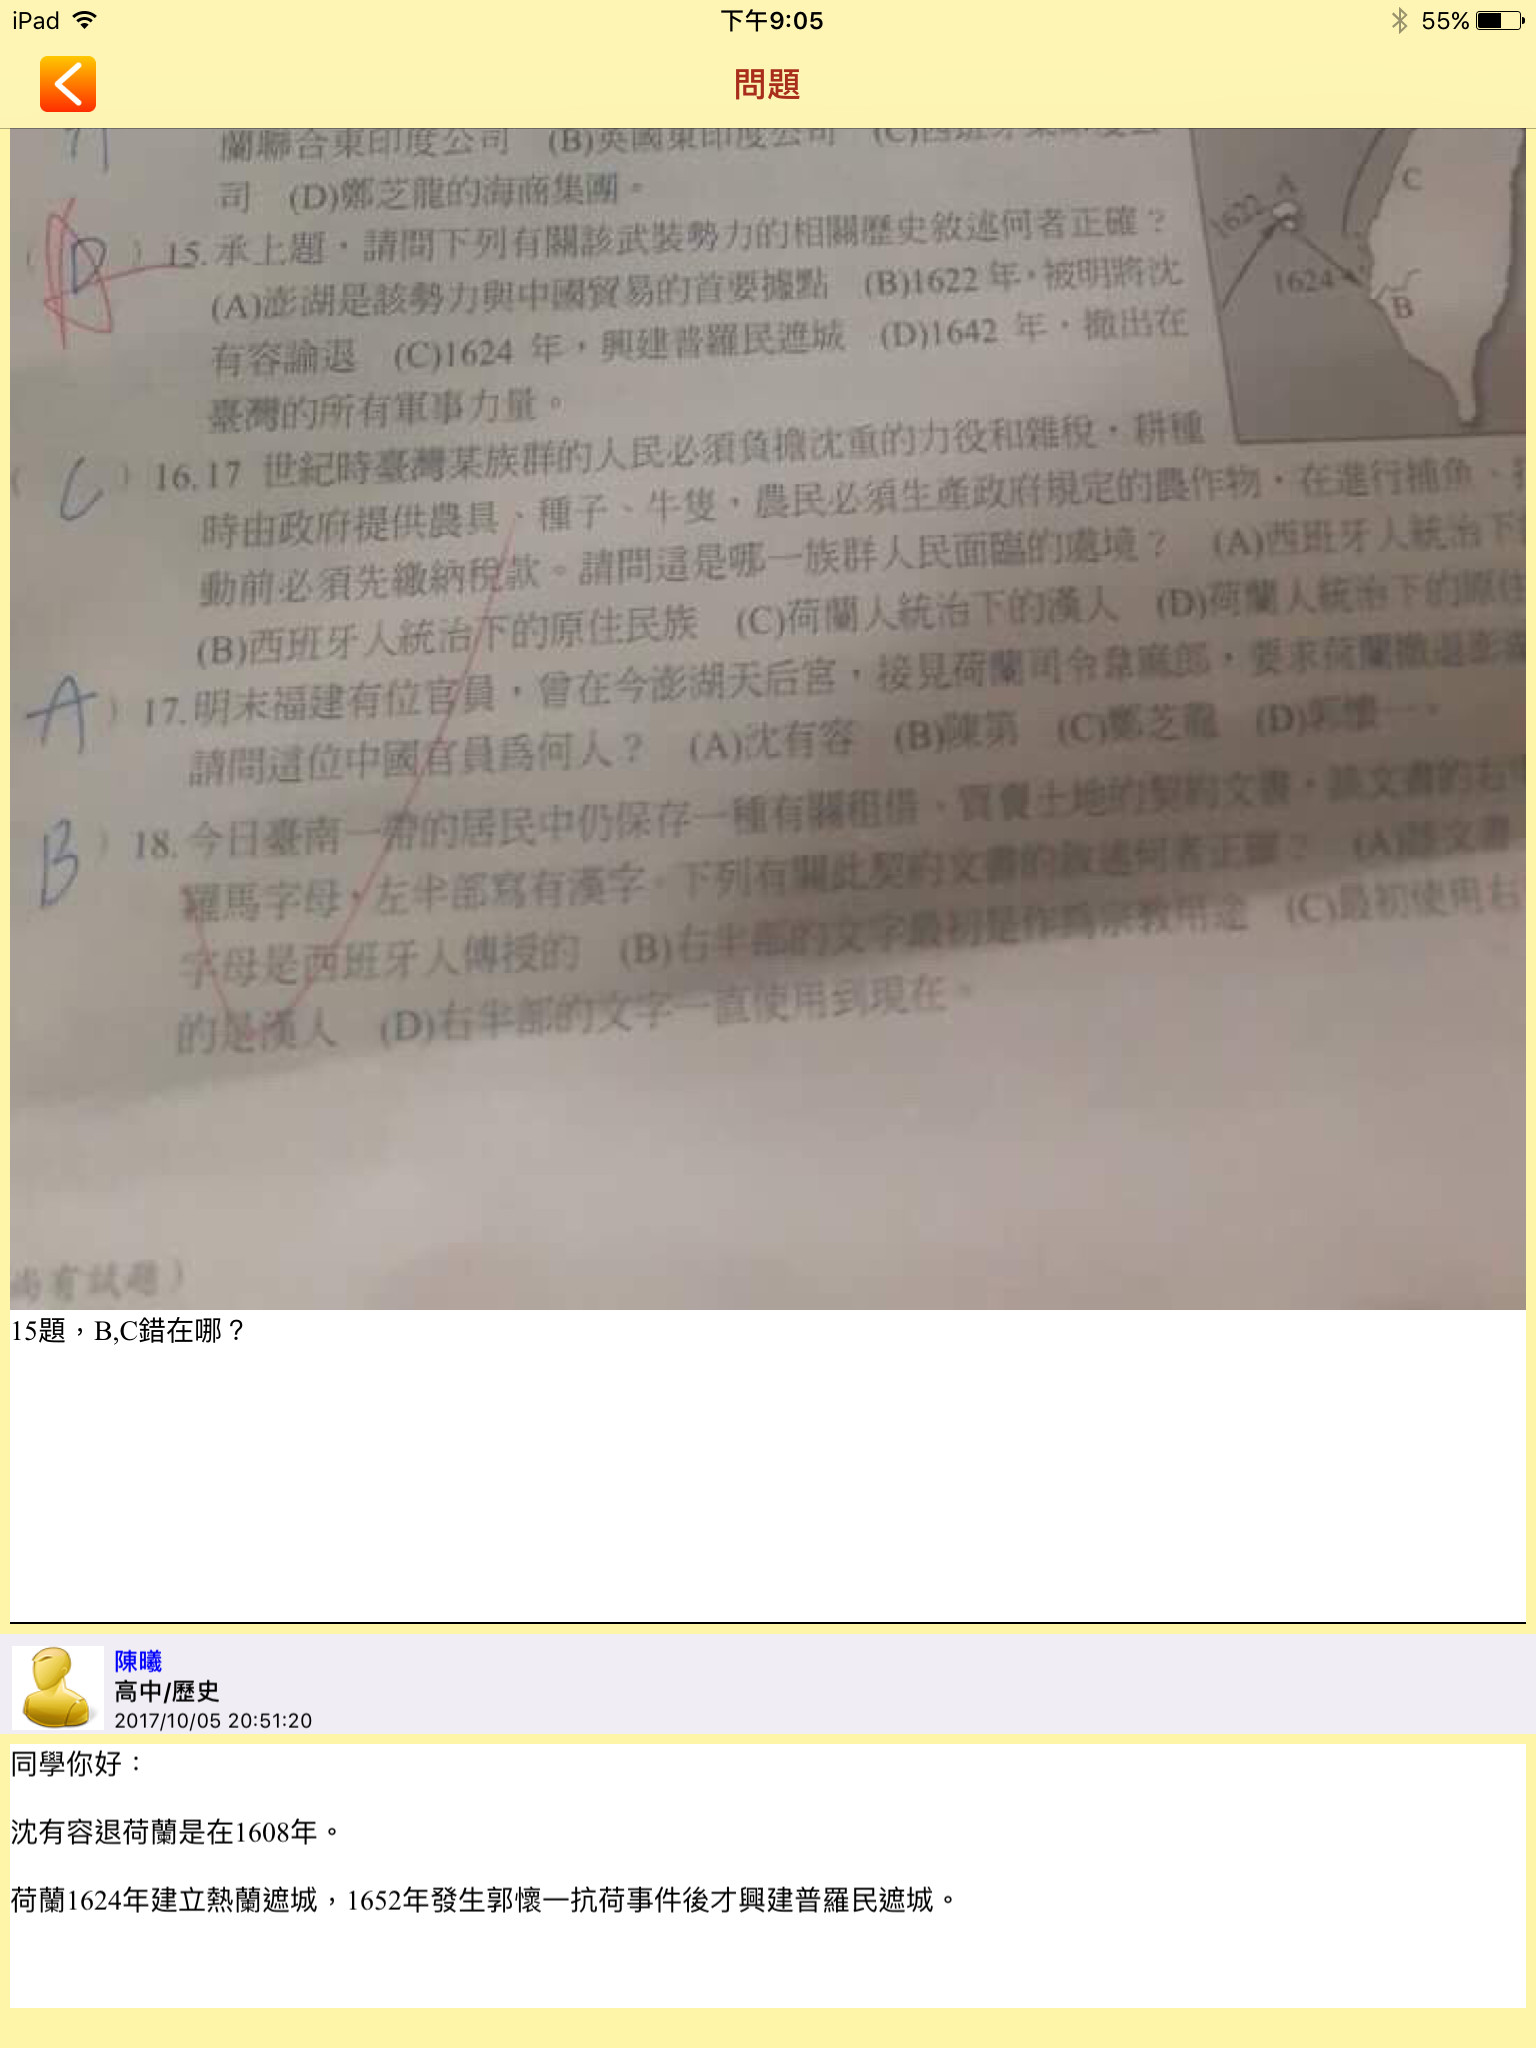 iPad
下午9:05
55%
問題
蘭聯合東印度公司 (B)英國東印度公司 (C)西班牙東印度公
司 (D)鄭芝龍的海商集團。
A
D
15.承上題，請問下列有關該武裝勢力的相關歷史敘述何者正確？
(A)澎湖是該勢力與中國貿易的首要據點 (B)1622 年，被明將沈
有容諭退 (C)1624 年，興建普羅民遮城 (D)1642 年，撤出在
臺灣的所有軍事力量。
A
C
1622
1624
B
C
16.17 世紀時臺灣某族群的人民必須負擔沈重的力役和雜稅，耕種
時由政府提供農具、種子、牛隻，農民必須生產政府規定的農作物，在進行捕魚、
動前必須先繳納稅款。請問這是哪一族群人民面臨的處境？ (A)西班牙人統治下
(B)西班牙人統治下的原住民族 (C)荷蘭人統治下的漢人 (D)荷蘭人統治下的原住
A
17.明末福建有位官員，曾在今澎湖天后宮，接見荷蘭司令韋麻郎，要求荷蘭撤退澎湖
請問這位中國官員爲何人？ (A)沈有容 (B)陳第 (C)鄭芝龍 (D)郭懷一。
B
18.今日臺南一帶的居民中仍保存一種有關租借、買賣土地的契約文書，該文書的右
羅馬字母，左半部寫有漢字。下列有關此契約文書的敘述何者正確？ (A)該文書
字母是西班牙人傳授的 (B)右半部的文字最初是作爲宗教用途 (C)最初使用右
的是漢人 (D)右半部的文字一直使用到現在。
尚有試題）
15題，B,C錯在哪？
陳曦
高中/歷史
2017/10/05 20:51:20
同學你好：
沈有容退荷蘭是在1608年。
荷蘭1624年建立熱蘭遮城，1652年發生郭懷一抗荷事件後才興建普羅民遮城。